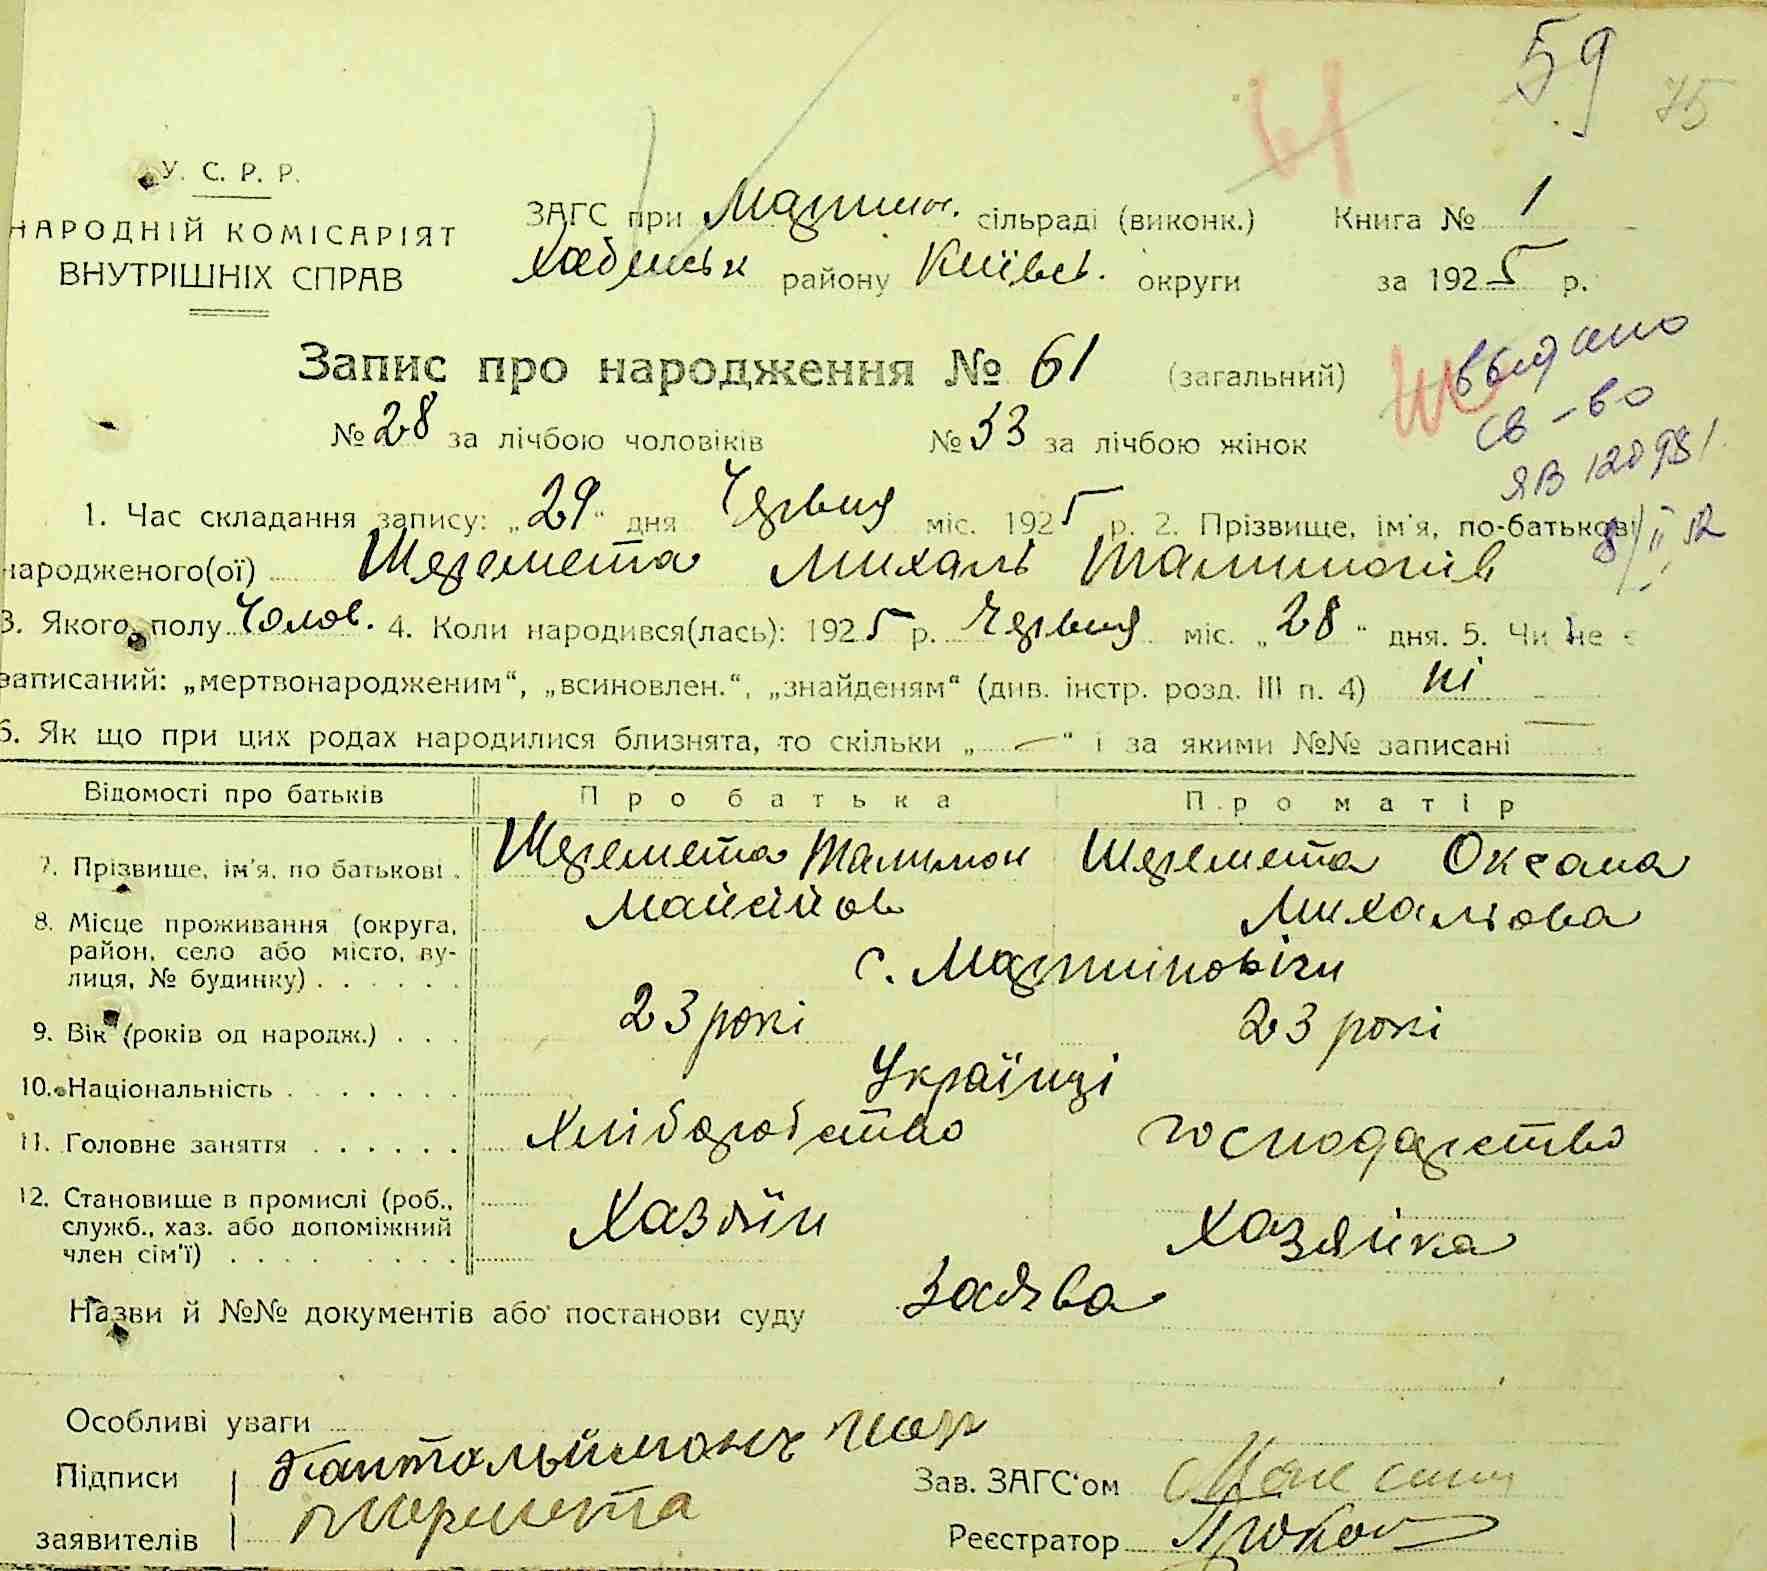 59
75
61
У. С. Р. Р.
НАРОДНІЙ КОМІСАРІЯТ
ВНУТРІШНІХ СПРАВ
ЗАГС при Мартинов. сільраді (виконк.) Книга № 1
Хабенськ району Київськ. округи за 1925 р.
Запис про народження № 61 (загальний)
выдано
св-во
№ 28 за лічбою чоловіків № 33 за лічбою жінок
ЯВ 120981
1. Час складання запису: „29“ дня Червця міс. 1925 р. 2. Прізвище, ім'я, по-батькові
8/II 52
народженого(ої) Шеремета Михаль Талимонів
3. Якого полу Чолов. 4. Коли народився(лась): 1925 р. Червця міс. „28“ дня. 5. Чи не є
записаний: „мертвонародженим“, „всиновлен.“, „знайденям“ (див. інстр. розд. III п. 4) ні
6. Як що при цих родах народилися близнята, то скільки „—“ і за якими №№ записані —
Відомості про батьків Про батька Про матір
7. Прізвище, ім'я, по батькові. Шеремета Талимон Шеремета Оксана
Майсійов Михальова
8. Місце проживання (округа,
район, село або місто, ву-
лиця, № будинку) с. Мартиновічи
9. Вік (років од народж.) 23 рокі 23 рокі
10. Національність Українці
11. Головне заняття Хліборобство господарство
12. Становище в промислі (роб.,
служб., хаз. або допоміжний
член сім'ї) Хазяїн Хазяйка
Назви й №№ документів або постанови суду Заява
Особливі уваги
Підписи Пантальймонъ Шер
Зав. ЗАГС'ом
заявителів
Реєстратор